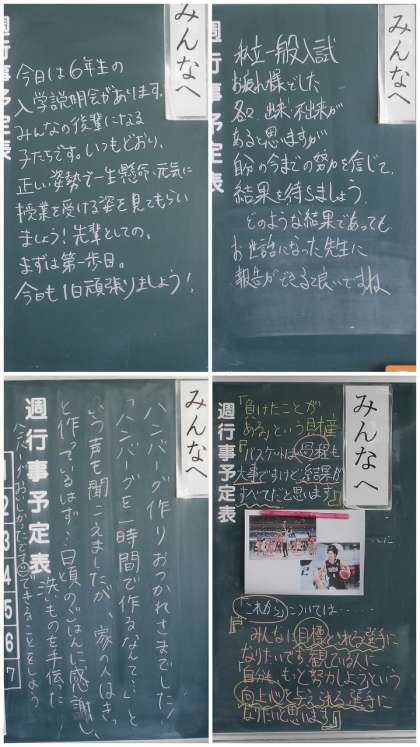 みんなへ
今日は6年生の
入学説明会があります。
みんなの後輩になる
子たちです。いつもどおり、
正しい姿勢で一生懸命、元気に
授業を受ける姿を見てもらい
ましょう！先輩としての、
まずは第一歩目。
今日も1日頑張りましょう！
週行事予定表
みんなへ
私立一般入試
お疲れ様でした
各々 出来・不出来が
あると思いますが
自分の今までの努力を信じて、
結果を待ちましょう。
どのような結果であっても
お世話になった先生に
報告ができると良いですね
みんなへ
ハンバーグ作りおつかれさまでした！
「ハンバーグを一時間で作るなんて…」と
いう声も聞こえましたが、家の人はきっ
と作っているはず…日頃のごはんに感謝し、
洗いものを手伝った
できることをしよう
週行事予定表
1
2
3
4
5
6
7
みんなへ
週行事予定表
『負けたことが
ある』という財産
『バスケットは過程も
大事ですけど、結果が
すべてだと思います』
『これから』については……
『みんなに目標とされる選手に
なりたいです。観ている人に
「自分も、もっと努力しよう」という
向上心を与えられる選手に
なりたいと思います』